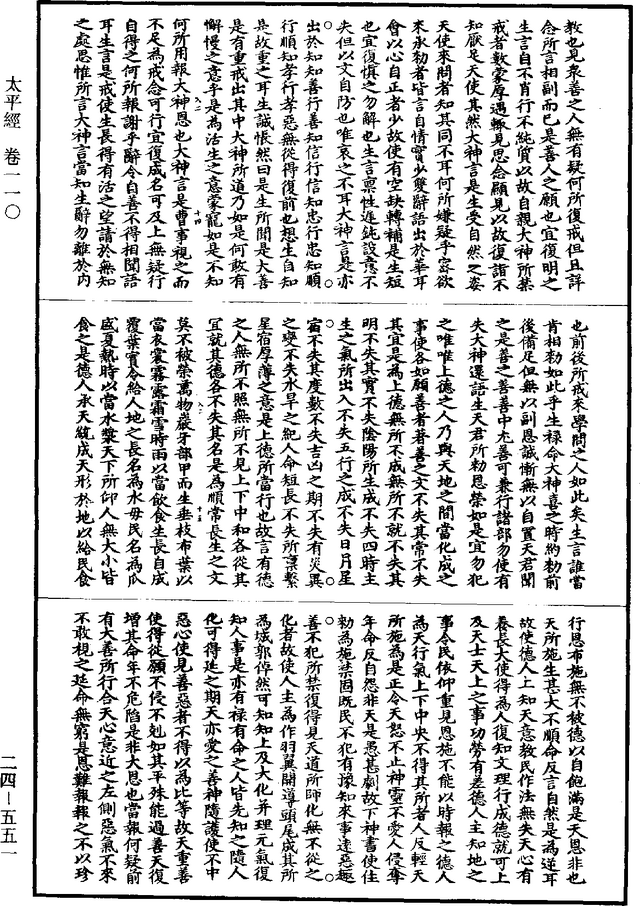 太平經　卷一一〇
教也見衆善之人無有疑何所復戒但且詳
念所言相副而已是善人之願也宜復明之
生言自不肖行不純質以故自親大神所禁
戒者數蒙厚遇輒見思念顧見以故復詣不
知厭足天使其然大神言是生受自然之姿
天使來問者知其同不耳何所嫌疑乎當欲
來承勑者皆言自情實少雙辭語出於華耳
會以心自正者少故使有空缺轉補是生短
也宜復慎之勿解也生言稟性遲鈍設意不
失但以文自防也唯哀之不耳大神言是亦
出於知知善行善知信行信知忠行忠知順
行順知孝行孝惡無從得復前也想生自知
是故重之耳生誠悵然曰是生所聞是大善
是有重戒出其中大神所道乃如是何敢有
懈慢之意乎是為活生之意蒙寵如是不知
何所用報大神恩也大神言是曹事視之而
不足為戒念可行宜復成名可及上無疑行
自得之何所報謝乎辭令自善不得相聞語
耳生言是戒使生長得有活之望請於無知
之處思惟所言大神言當知生辭勿離於內
也前後所戒來學問之人如此矣生言誰當
肯相勑如此乎生祿命大神喜之時約勑前
後備足但無以副恩誠慚無以自置天君聞
之是善之善善中尤善可兼行諸部勿使有
失大神還語生天君所勑恩榮如是宜勿犯
之唯唯上德之人乃與天地之間當化成之
事使各如願善者著善之文不失其常不失
其宜是為上德無所不成無所不就不失其
明不失其實不失陰陽所生成不失四時主
生之氣所出入不失五行之成不失日月星
宿不失其度數不失吉凶之期不失有災異
之變不失水旱之紀人命短長不失所稟繫
星宿厚薄之意是上德所當行也故言有德
之人無所不照無所不見上下中和各從其
宜就其德各不失其名是為順常長生之文
莫不被榮萬物嚴牙部甲而生垂枝布葉以
當衣裳霧露霜雪時雨以當飲食生長自成
覆葉實令給人地之長名為水母民名為瓜
盛夏熱時以當水漿天下所仰人無大小皆
食之是德人承天統成天形於地以給民食
行恩布施無不被德以自飽滿是天恩非也
天所施生甚大不順命反言自然是為逆耳
故使德人上知天意教民作法無失天心有
養長大使得為人復知文理行成德就可上
及天士天上之事功勞有差德人主知地之
事令民依仰重見恩施不能以時報之德人
為天行氣上下中央不得其所者人反輕天
所施為是正令天怒不止神靈不愛人侵奪
年命反自怨非天是愚甚劇故下神書使住
勑為施禁固既民不犯有豫知來事達惡趣
善不犯所禁復得見天道所師化無不從之
化者故使人主為作羽翼開導頭尾成其所
為城郭倬然可知知上及大化并理元氣復
知人事是亦有祿有命之人皆先知之隨人
化可得延之期天亦愛之善神隨護使不中
惡心使見善惡者不得以為比等故天重善
使得從願不侵不剋如其平殊能過善天復
增其命年不危陷是非大恩也當報何疑前
有大善所行合天心意近之左側惡氣不來
不敢視之延命無窮是恩難報報之不以珍
二四—五五一